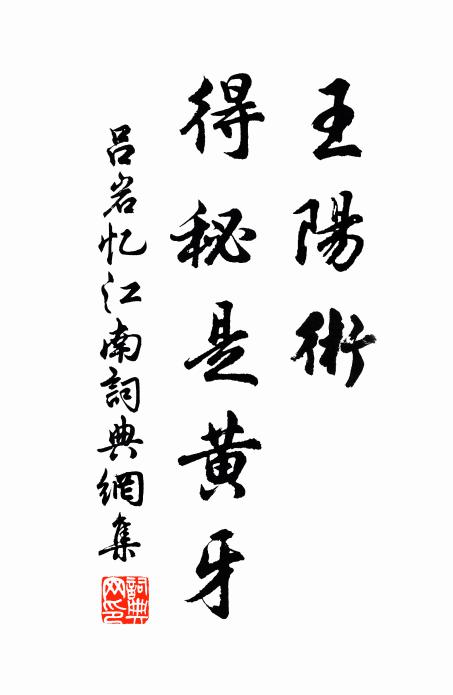 王陽術
得秘是黃牙
呂岩忆江南詞典網集
詞典網印